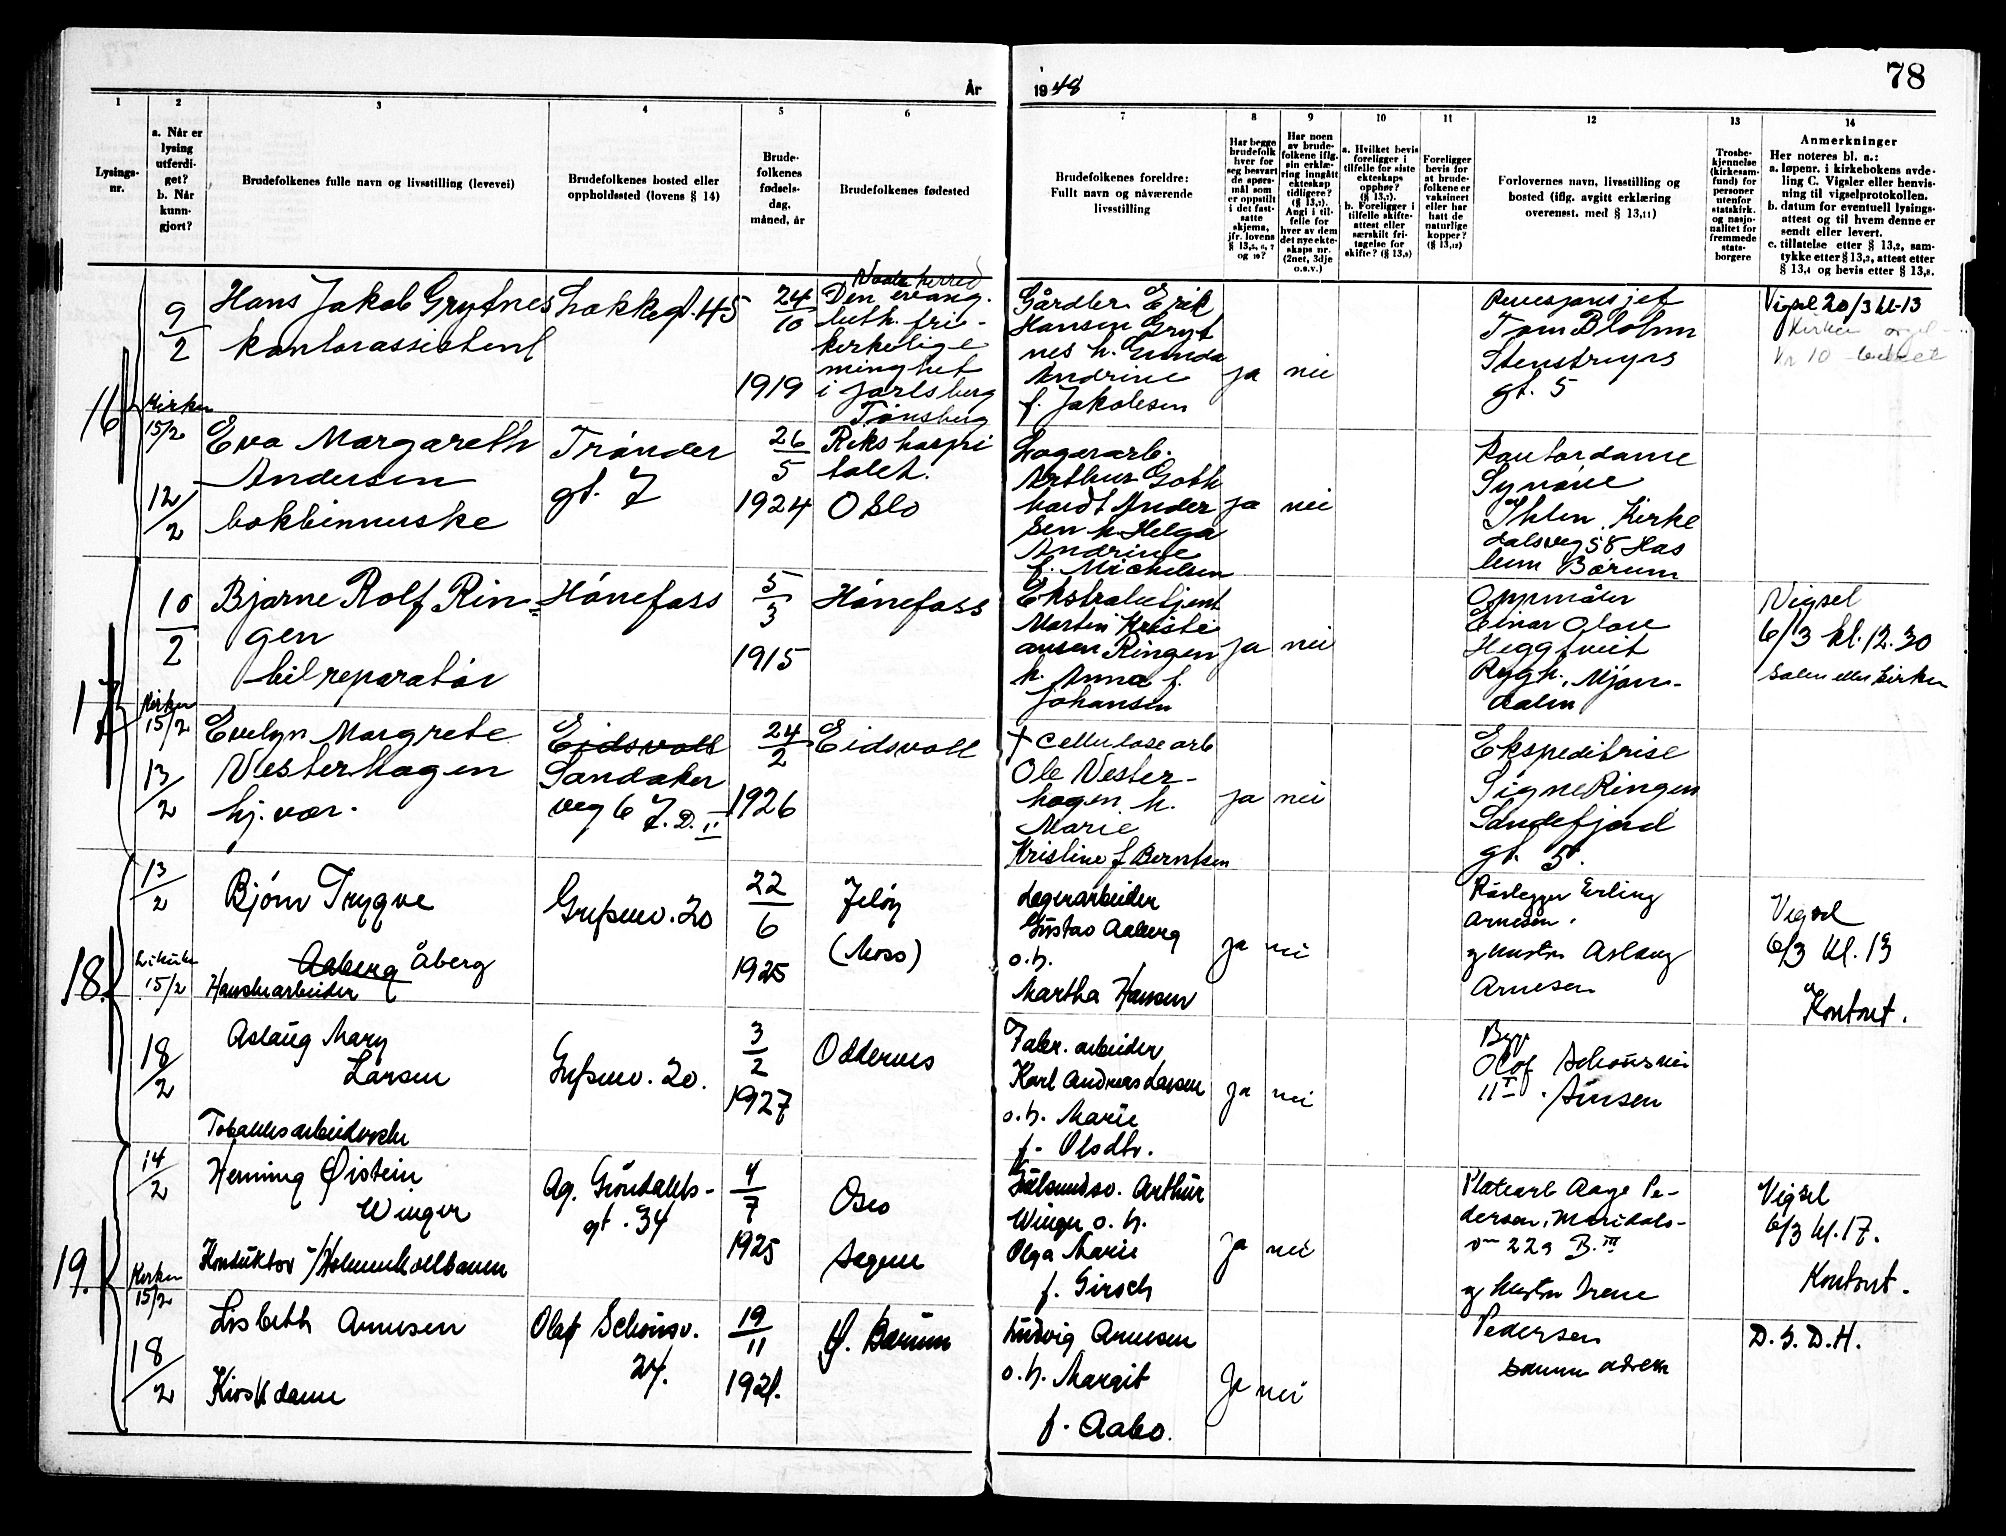 78
År
1948
1
2
3
4
5
6
7
8
9
10
11
12
13
14
Lysings-
nr.
a. Når er
lysing
utferdi-
get?
b. Når
kunn-
gjort?
Brudefolkenes fulle navn og livsstilling (levevei)
Brudefolkenes bosted eller
oppholdssted (lovens § 14)
Brude-
folkenes
fødsels-
dag,
måned, år
Brudefolkenes fødested
Brudefolkenes foreldre:
Fullt navn og nåværende
livsstilling
Har begge
brudefolk
hver for
seg besvart
de spørs-
mål som
er oppstilt
i det fast-
satte
skjema,
jfr. lovens
§ 13,5, 6, 7
og 10?
Har noen
av brude-
folkene iflg.
sin erklæ-
ring inngått
ekteskap
tidligere?
(§ 13,7).
Angi i til-
felle for
hver av dem
det nye ekte-
skaps nr.
(2net, 3dje
o.s.v.)
a. Hvilket bevis
foreligger i
tilfelle for siste
ekteskaps
opphør?
(§ 13,7).
b. Foreligger i
tilfelle skifte-
attest eller
særskilt fri-
tagelse for
skifte? (§ 13,9)
Foreligger
bevis for
at brude-
folkene er
vaksinert
eller har
hatt de
naturlige
kopper?
(§ 13,12)
Forlovernes navn, livsstilling og
bosted (iflg. avgitt erklæring
overenst. med § 13,11)
Trosbe-
kjennelse
(kirkesam-
fund) for
personer
utenfor
statskirk.
og nasjo-
nalitet for
fremmede
stats-
borgere
Anmerkninger
Her noteres bl. a.:
a. løpenr. i kirkebokens avde-
ling C. Vigsler eller henvis-
ning til Vigselprotokollen.
b. datum for eventuell lysings-
attest og til hvem denne er
sendt eller levert.
c. tillatelse etter § 13,2, sam-
tykke etter § 13,3, attest etter
§ 13,4 og bevis etter § 13,8.
16
9/2
Kirken
15/2
12/2
Hans Jakob Grytnes
kontorassistent
Lakkegt. 45
24/10
1919
Den evang.
luth. fri-
kirkelige
minghet
i Jarlsberg
Tønsberg
Gårdbr. Erik
Hansen Gryt
nes h. Gunda
Andrine
f. Jakobsen
ja
nei
Tom Blohm
Stenstrups
gt. 5
Vigsel 20/3 kl. 13
Eva Margareth
Andersen
bokbinnerske
Trønder
gt. 7
26/5
1924
Rikshospi
talet.
Oslo
Lagerarb.
Arthur Goth
hardt Ander
sen h. Helga
Andrine
f. Michelsen
ja
nei
Kontordame
Synøve
Ihlen, Kirke
dalsveg 58 Has
lum Bærum
17
10/2
Kirken
15/2
13/2
Bjarne Rolf Rin-
gen
bilreparatør
Hønefoss
5/3
1915
Hønefoss
Ekstrabetjent
Martin Kristi
ansen Ringen
h. Anna f.
Johansen
ja
nei
Oppmåler
Einar Olose
Heggtveit
Rygh, Mjøn-
dalen
Vigsel
6/3 kl. 12.30
Salen eller kirken
Evelyn Margrete
Vesterhagen
hj. vær.
Eidsvoll
Sandaker
veg 67. D. II
24/2
1926
Eidsvoll
† Cellulosearb
Ole Vester-
hagen h.
Marie
Kristine f Berntsen
ja
nei
Ekspeditrise
Signe Ringen
Sandefjord
gt. 5.
18.
13/2
15/2
18/2
Bjørn Trygve
Aaberg Åberg
Hanskearbeider
Grefsenv. 20
22/6
1925
Jeløy
(Moss)
Lagerarbeider
Gustav Aaberg
o. h.
Martha Hansen
ja
nei
Rørlegger Erling
Arnesen.
og hustru Aslaug
Arnesen
Vigsel
6/3 kl. 13
Kontort.
Aslaug Mary
Larsen
Tobakksarbeiderske
Grefsenv. 20.
3/2
1927
Oddernes
Fabr. arbeider
Karl Andreas Larsen
o. h. Marie
f. Olsdtr.
ja
nei
Olof Schousvei
II
19.
14/2
Kirken
15/2
18/2
Henning Øistein
Winger
Konduktør /Holmenkollbanen
Ag. Grøndahls-
gt. 34
4/7
1925
Oslo
Sagene
Arthur
Winger o. h.
Olga Marie
f. Girsch
ja
nei
Platearb Aage Pe-
dersen, Maridals-
v 229 B. III
og hustru Irene
Pedersen
samme adresse
Vigsel
6/3 kl. 17.
Kontort.
Lisbeth Arnesen
Kioskdame
Olaf Schousv.
24.
19/11
192
Bærum
Ludvig Arnesen
o. h. Margit
f. Aabo.
Ja
nei
D. S. D. H.